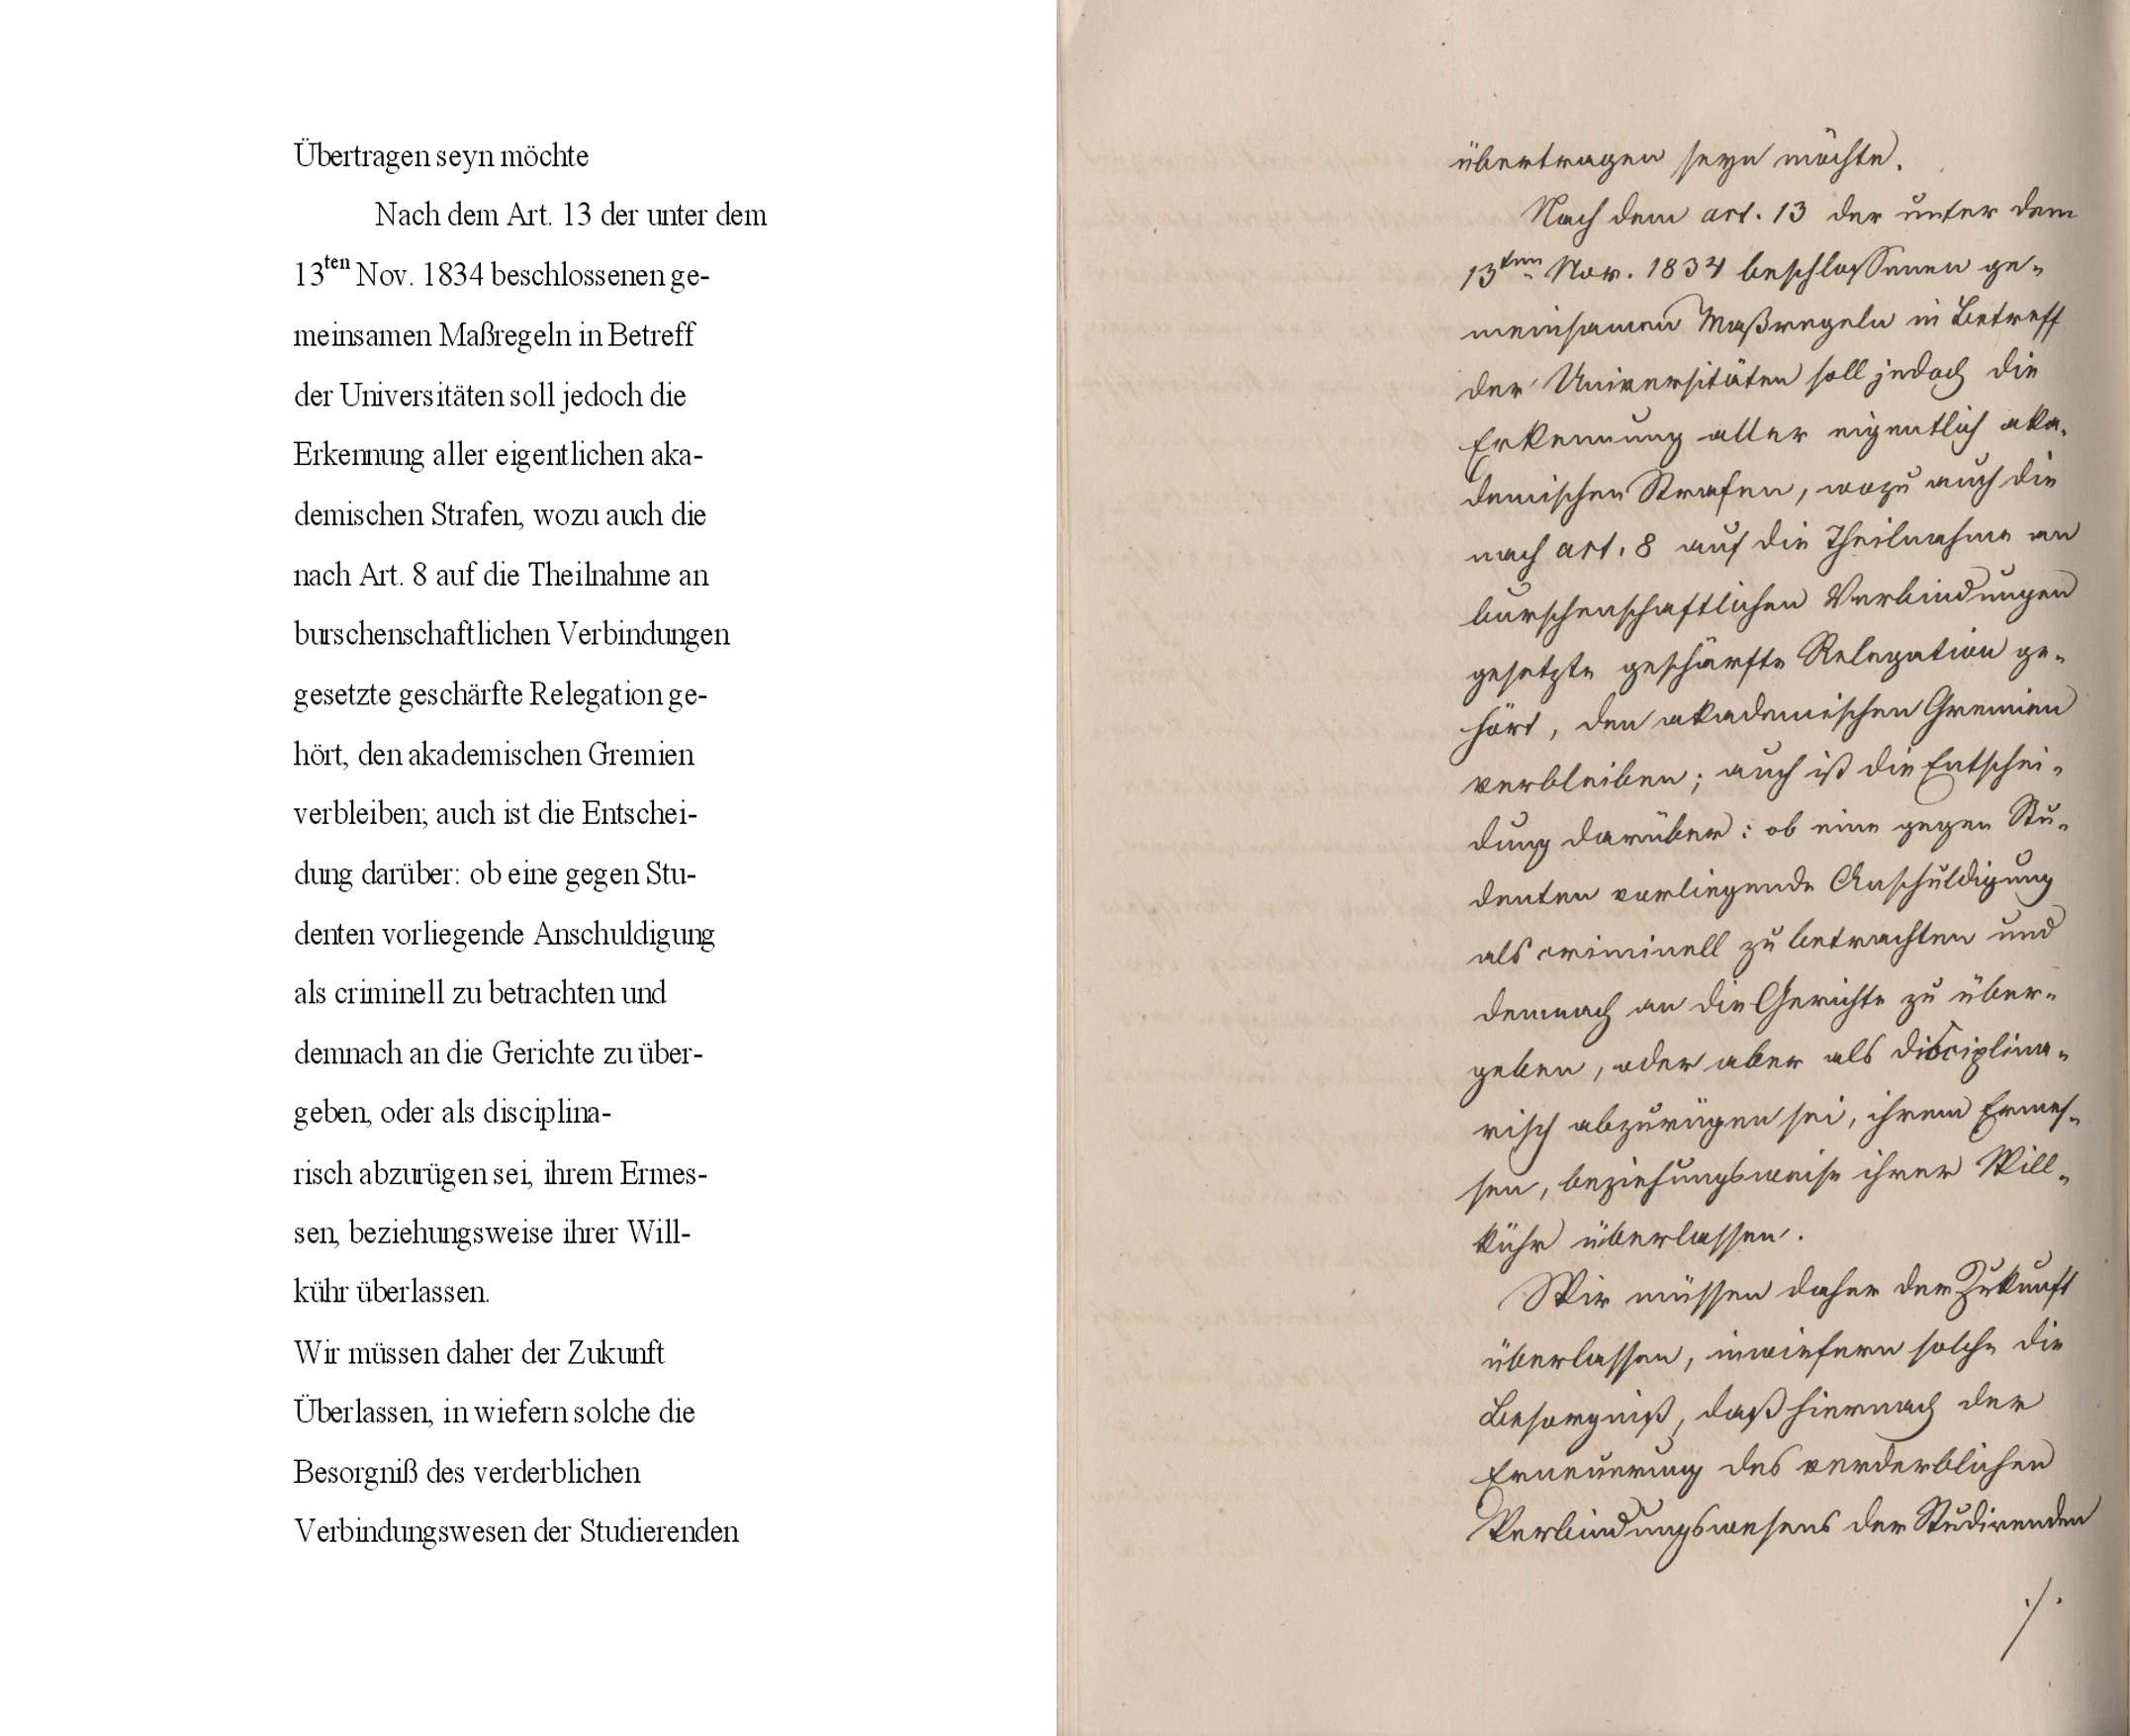 Übertragen seyn möchte
Nach dem Art. 13 der unter dem
13ten Nov. 1834 beschlossenen ge-
meinsamen Maßregeln in Betreff
der Universitäten soll jedoch die
Erkennung aller eigentlichen aka-
demischen Strafen, wozu auch die
nach Art. 8 auf die Theilnahme an
burschenschaftlichen Verbindungen
gesetzte geschärfte Relegation ge-
hört, den akademischen Gremien
verbleiben; auch ist die Entschei-
dung darüber: ob eine gegen Stu-
denten vorliegende Anschuldigung
als criminell zu betrachten und
demnach an die Gerichte zu über-
geben, oder als disciplina-
risch abzurügen sei, ihrem Ermes-
sen, beziehungsweise ihrer Will-
kühr überlassen.
Wir müssen daher der Zukunft
Überlassen, in wiefern solche die
Besorgniß des verderblichen
Verbindungswesen der Studierenden
übertragen seyn möchte.
Nach dem art. 13 der unter dem
13ten Nov. 1834 beschlossenen ge-
meinsamen Maßregeln in Betreff
der Universitäten soll jedoch die
Erkennung aller eigentlich aka-
demischen Strafen, wozu auch die
nach art. 8 auf die Theilnahme an
burschenschaftlichen Verbindungen
gesetzte geschärfte Relegation ge-
hört, den akademischen Gremien
verbleiben; auch ist die Entschei-
dung darüber: ob eine gegen Stu-
denten vorliegende Anschuldigung
als criminell zu betrachten und
demnach an die Gerichte zu über-
geben, oder aber als disciplina-
risch abzurügen sei, ihrem Ermes-
sen, beziehungsweise ihrer Will-
kühr überlassen.
Wir müssen daher der Zukunft
überlassen, inwiefern solche die
Besorgniß, daß hiernach der
Erneuerung des verderblichen
Verbindungswesens der Studirenden
./.